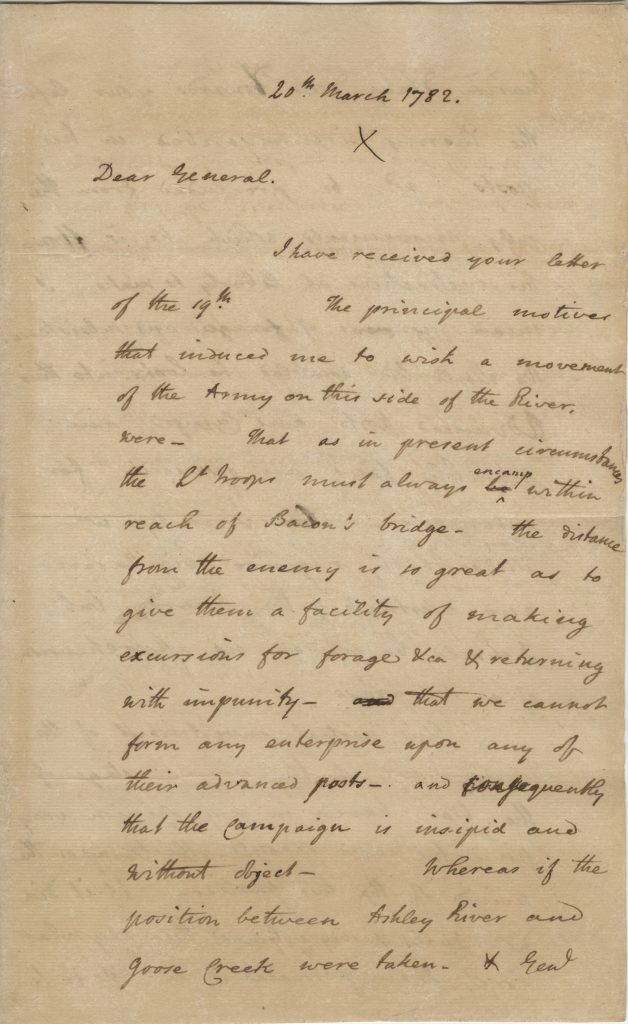 20th March 1782.
X
Dear General.
I have received your letter
of the 19th. The principal motives
that induced me to wish a movement
of the Army on this side of the River.
were – That as in present circumstances
the Lt troops must always be encamp within
reach of Bacon's bridge – the distance
from the enemy is so great as to
give them a facility of making
excursions for forage &ca & returning
with impunity – and that we cannot
form any enterprise upon any of
their advanced posts – and consequently
that the Campaign is insipid and
without object – Whereas if the
position between Ashley River and
Goose Creek were taken – & Genl